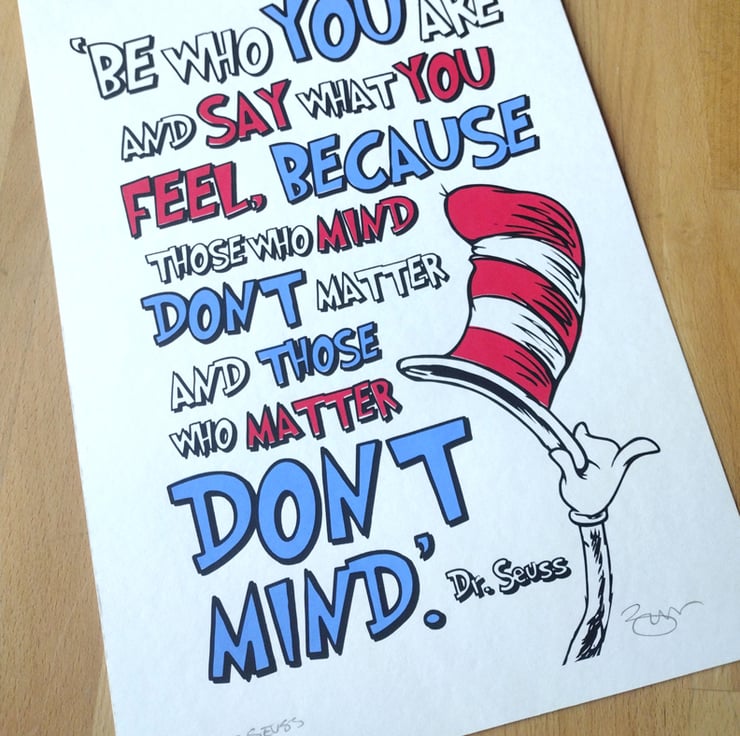 'BE WHO YOU ARE
AND SAY WHAT YOU
FEEL, BECAUSE
THOSE WHO MIND
DON'T MATTER
AND THOSE
WHO MATTER
DON'T
MIND.'
Dr. Seuss
SEUSS